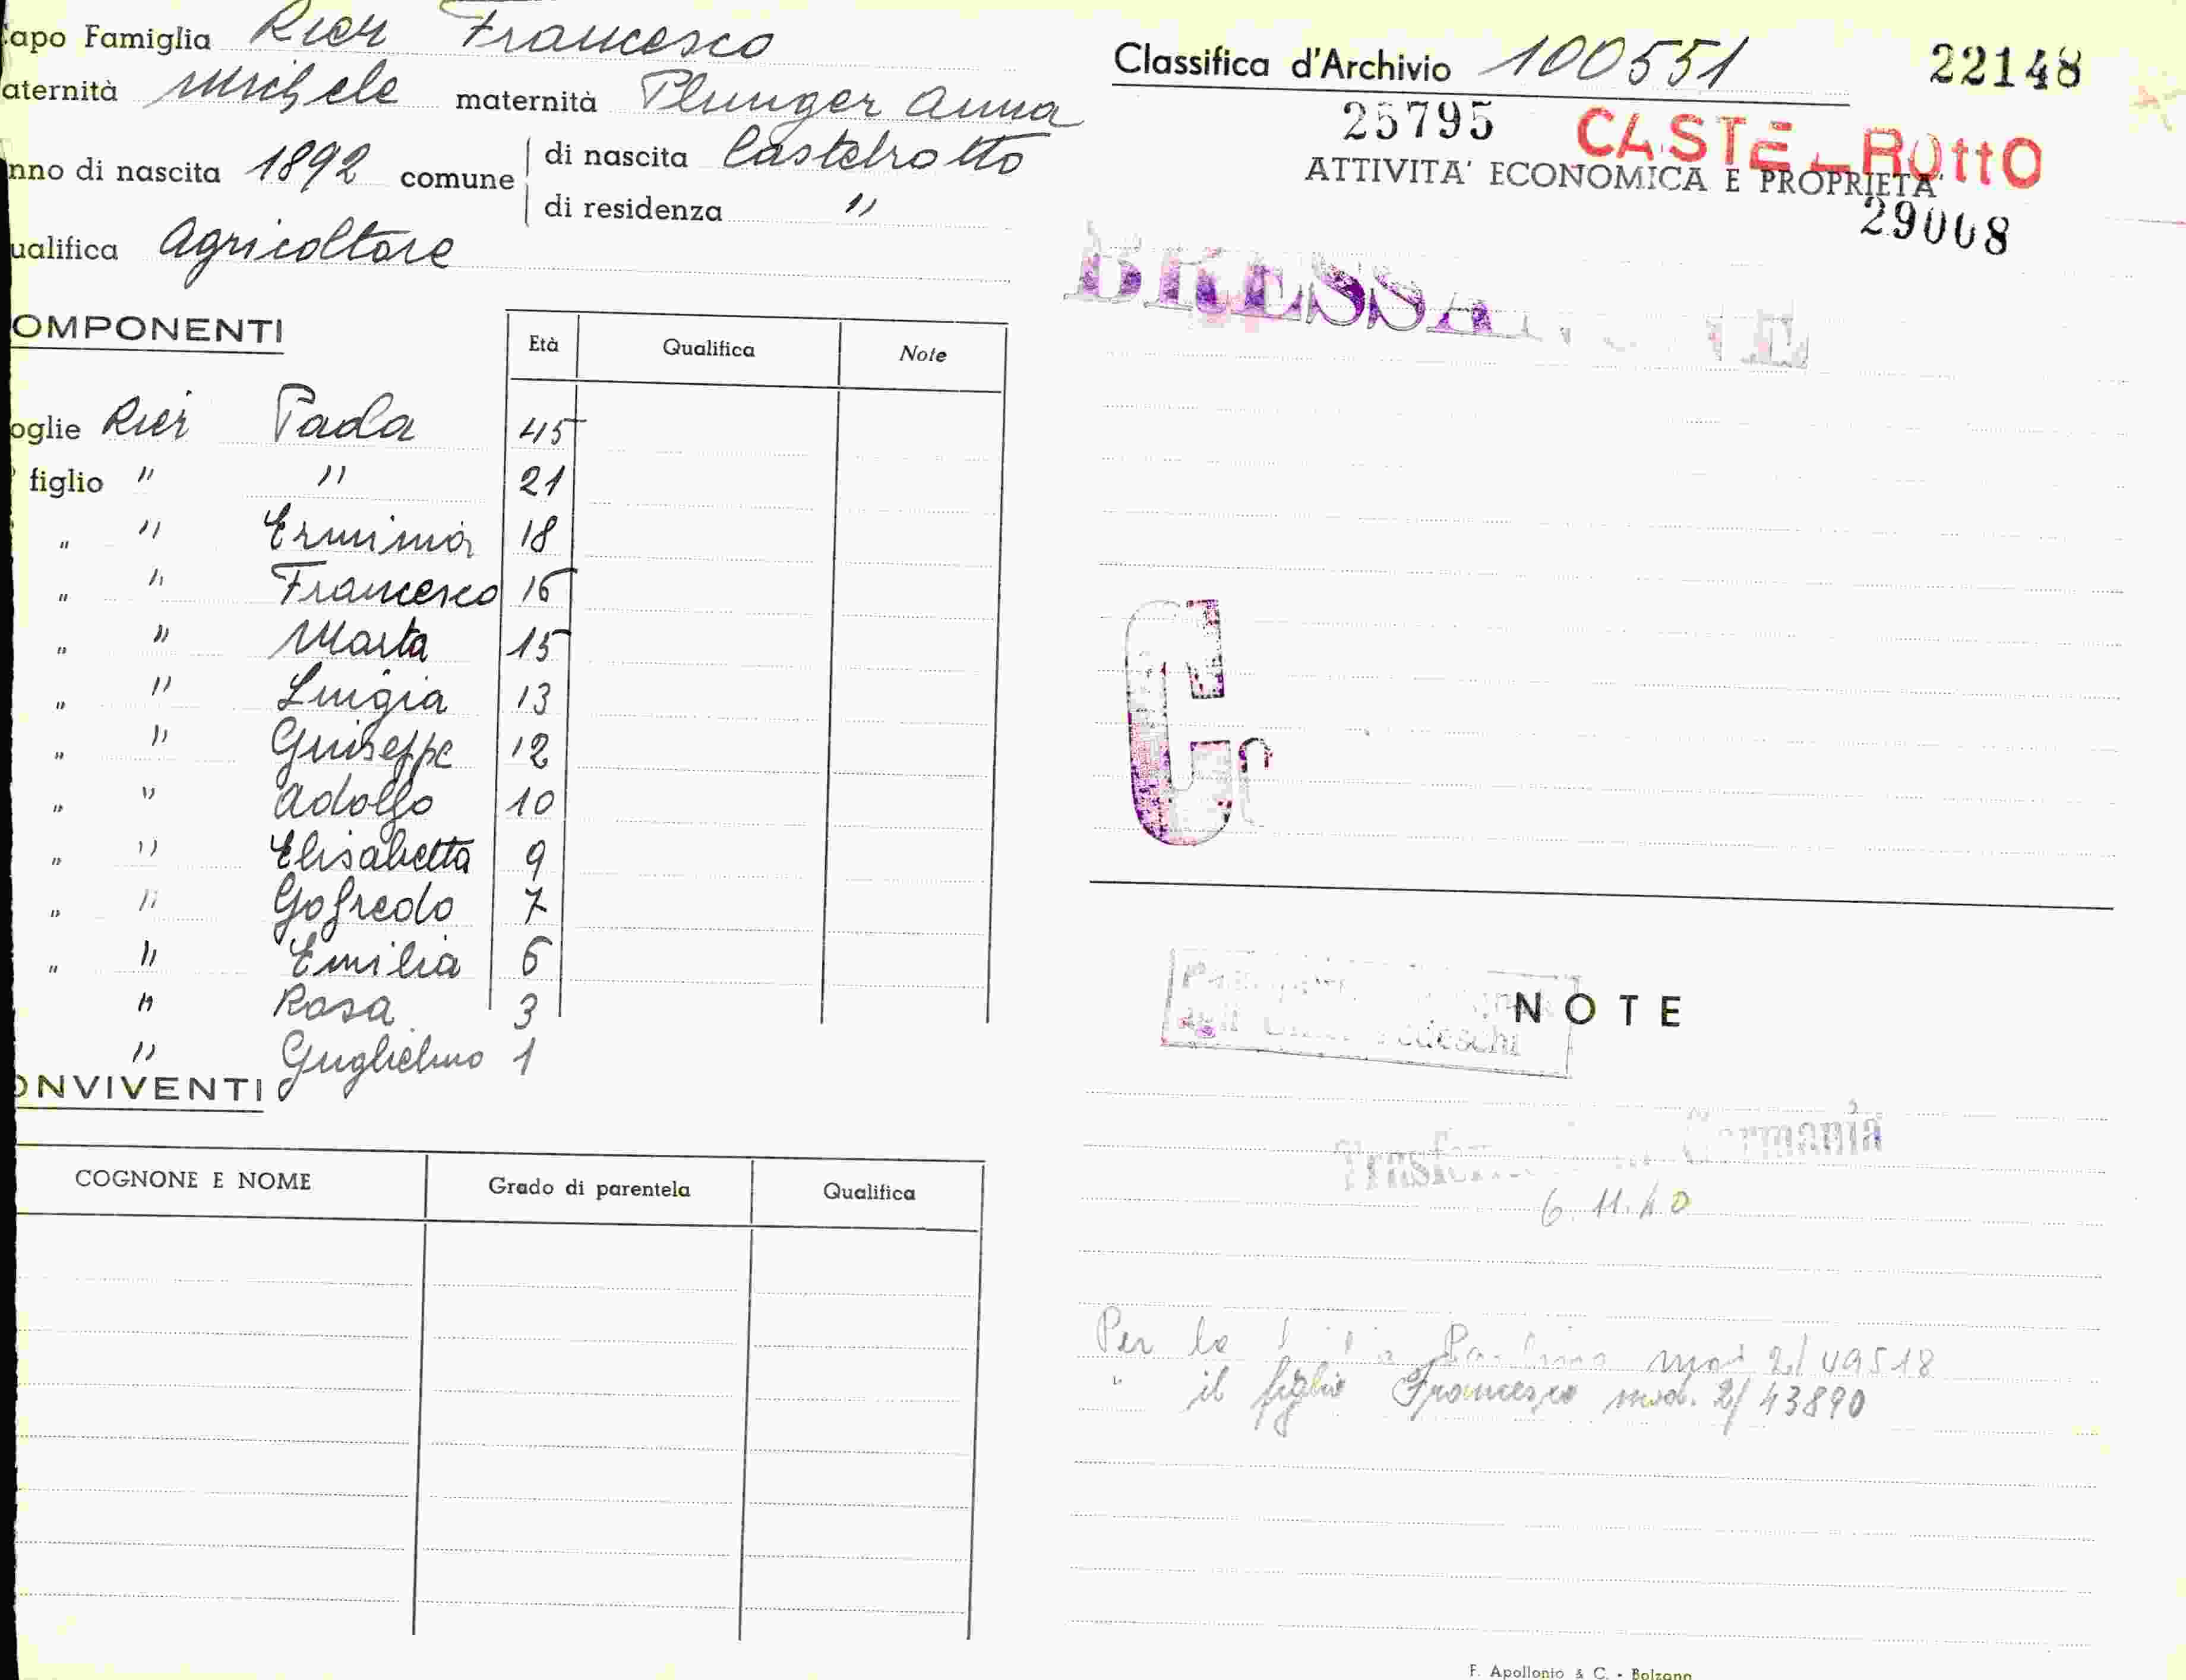 apo Famiglia Rier Francesco
aternità Michele maternità Plunger Anna
nno di nascita 1892 comune di nascita Castelrotto
di residenza "
ualifica Agricoltore
OMPONENTI
Età Qualifica Note
oglie Rier Paola 45
figlio " " 21
" " Erminia 18
" " Francesco 16
" " Marta 15
" " Luigia 13
" " Giuseppe 12
" " Adolfo 10
" " Elisabetta 9
" " Gofredo 7
" " Emilia 6
" Rosa 3
" Guglielmo 1
ONVIVENTI
COGNONE E NOME Grado di parentela Qualifica
Classifica d'Archivio 100551 22148
25795 CASTELROTTO
ATTIVITA' ECONOMICA E PROPRIETA'
29008
BRESSANONE
C
NOTE
Germania
6.11.40
Per la mod 2/49518
" il figlio Francesco mod. 2/43890
F. Apollonio & C. - Bolzano